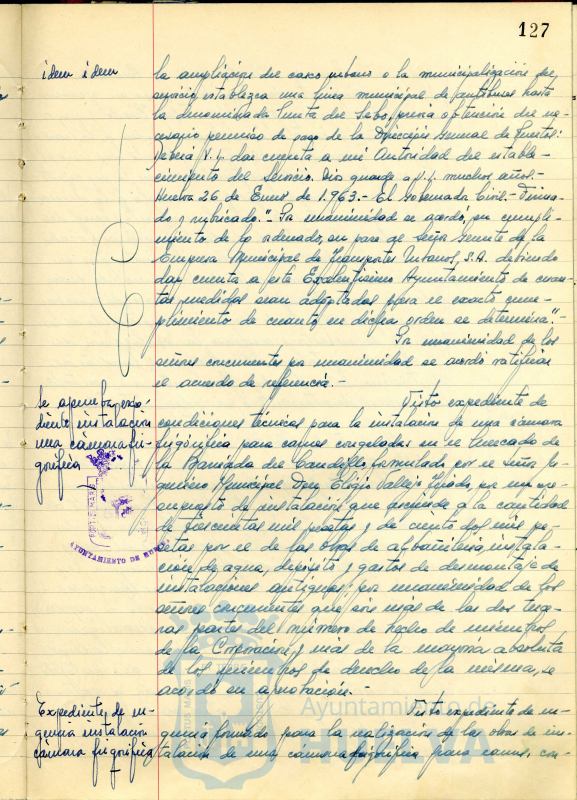 127
idem idem
la ampliación del casco urbano o la municipalización del
servicio, establezca una línea municipal de autobuses hasta
la denominada Punta del Sebo, previa obtención del ne-
cesario permiso de paso de la Dirección General de Puertos:
Deberá V.I. dar cuenta a mi Autoridad del estable-
cimiento del Servicio. Dios guarde a V.I. muchos años.-
Huelva 26 de Enero de 1.963.- El Gobernador Civil.- Firma-
do y rubricado." Por unanimidad se acordó, en cumpli-
miento de lo ordenado, se pase al Señor Gerente de la
Empresa Municipal de Transportes Urbanos, S.A. debiendo
dar cuenta a este Excelentísimo Ayuntamiento de cuan-
tas medidas sean adoptadas para el exacto cum-
plimiento de cuanto en dicha orden se determina."-
Por unanimidad de los
señores concurrentes por unanimidad se acordó ratificar
el acuerdo de referencia.-
Se aprueba expe-
diente instalación
una cámara fri-
gorífica
Visto expediente de
condiciones técnicas para la instalación de una cámara
frigorífica para carnes congeladas en el Mercado de
la Barriada del Carmen, formulado por el señor In-
geniero Municipal Don Eligio Vallejo, por un pre-
supuesto de instalación que asciende a la cantidad
de trescientas mil pesetas y de ciento dos mil pe-
setas por el de las obras de albañilería, instala-
ción de agua, depósito y gastos de desmontaje de
instalaciones antiguas; por unanimidad de los
señores concurrentes que son más de las dos terce-
ras partes del número de hecho de miembros
de la Corporación y más de la mayoría absoluta
de los miembros de derecho de la misma, se
acordó su aprobación.-
AYUNTAMIENTO DE HUELVA
Expediente de ur-
gencia instalación
cámara frigorífica
Visto expediente de ur-
gencia formado para la realización de las obras de ins-
talación de una cámara frigorífica para carnes, con-
Ayuntamiento de
HUELVA